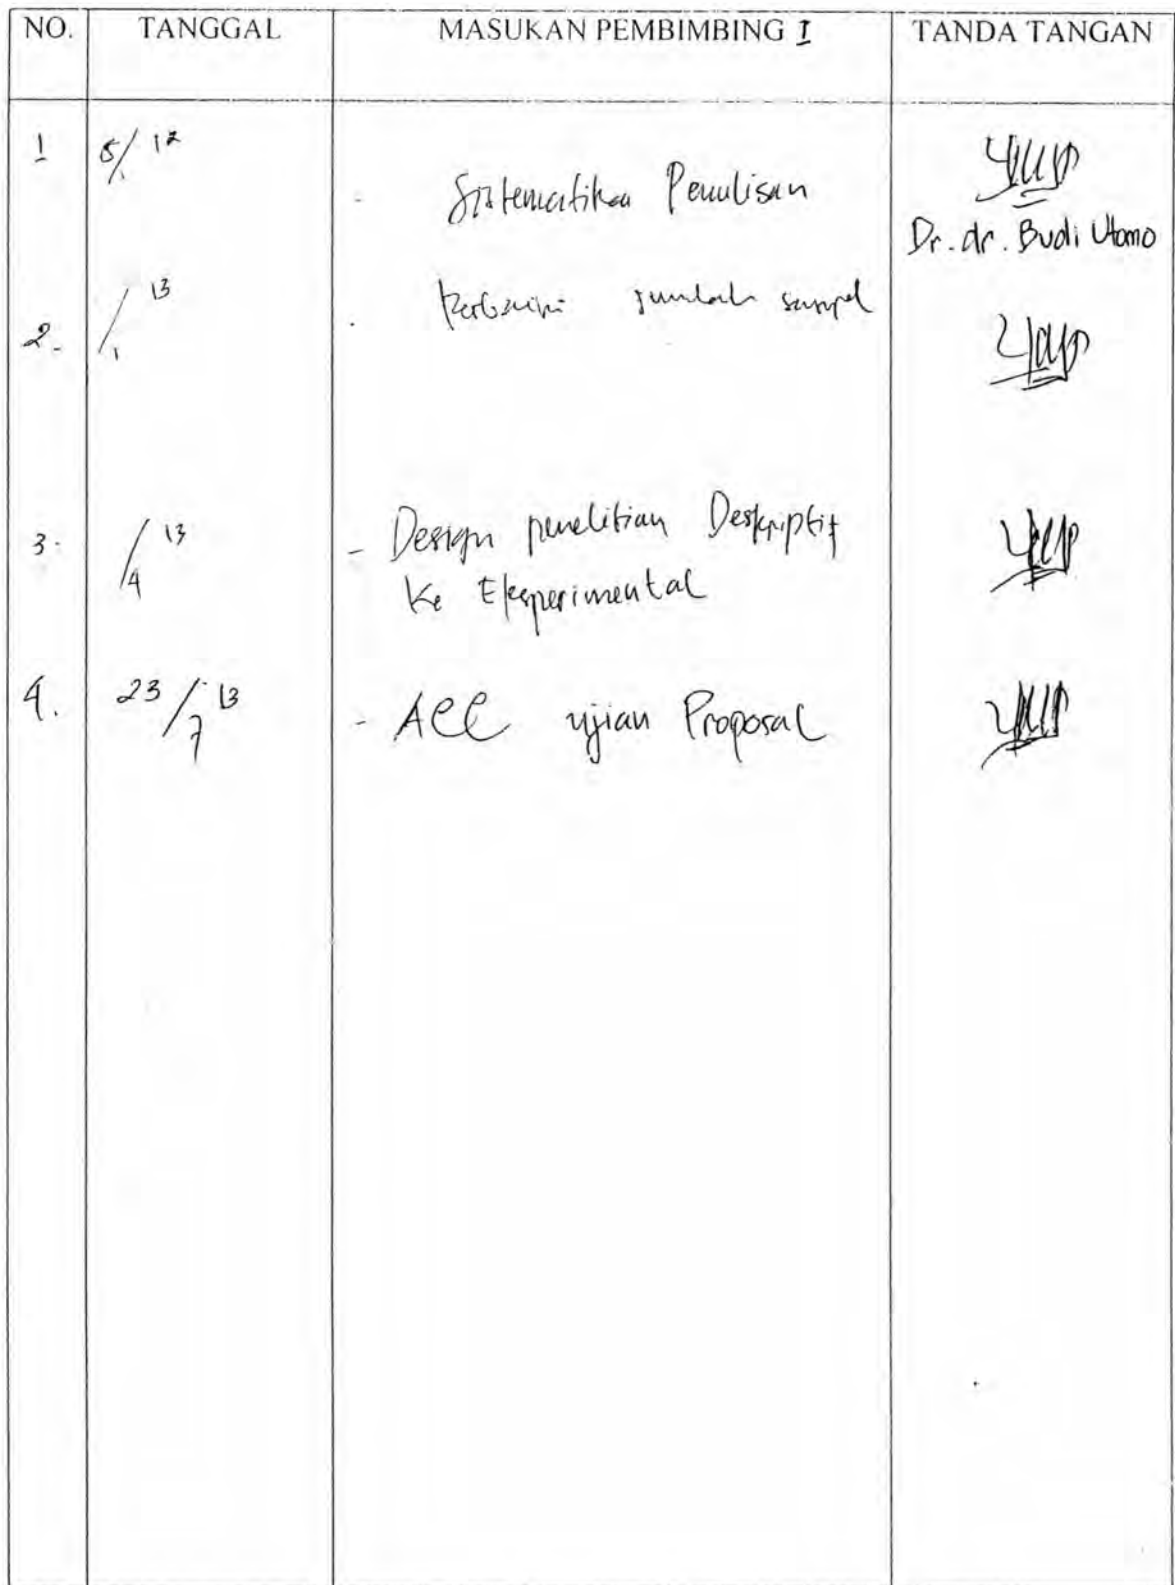 NO. TANGGAL MASUKAN PEMBIMBING I TANDA TANGAN
1 5/ 12 - Sistematika Penulisan
Dr. dr. Budi Utomo
2. /1 13 . jumlah sampel
3. /4 13 - Design penelitian Deskriptif
Ke Eksperimental
4. 23/7 13 - ACC ujian Proposal